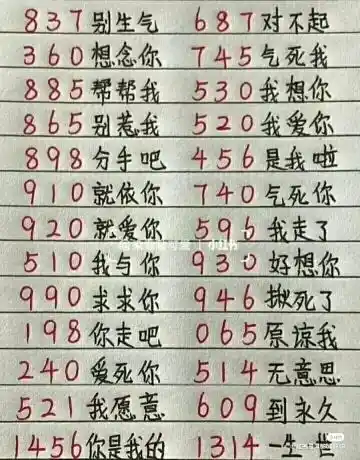 837别生气 687对不起
360想念你 745气死我
885帮帮我 530我想你
865别惹我 520我爱你
898分手吧 456是我啦
910就依你 740气死你
920就爱你 596我走了
510我与你 930好想你
990求求你 946揪死了
198你走吧 065原谅我
240爱死你 514无意思
521我愿意 609到永久
1456你是我的 1314一生一世
小红书